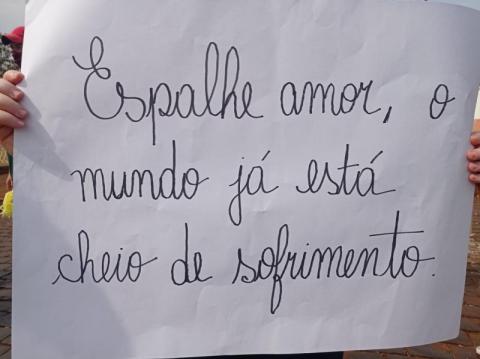 Espalhe amor, o
mundo já está
cheio de sofrimento.